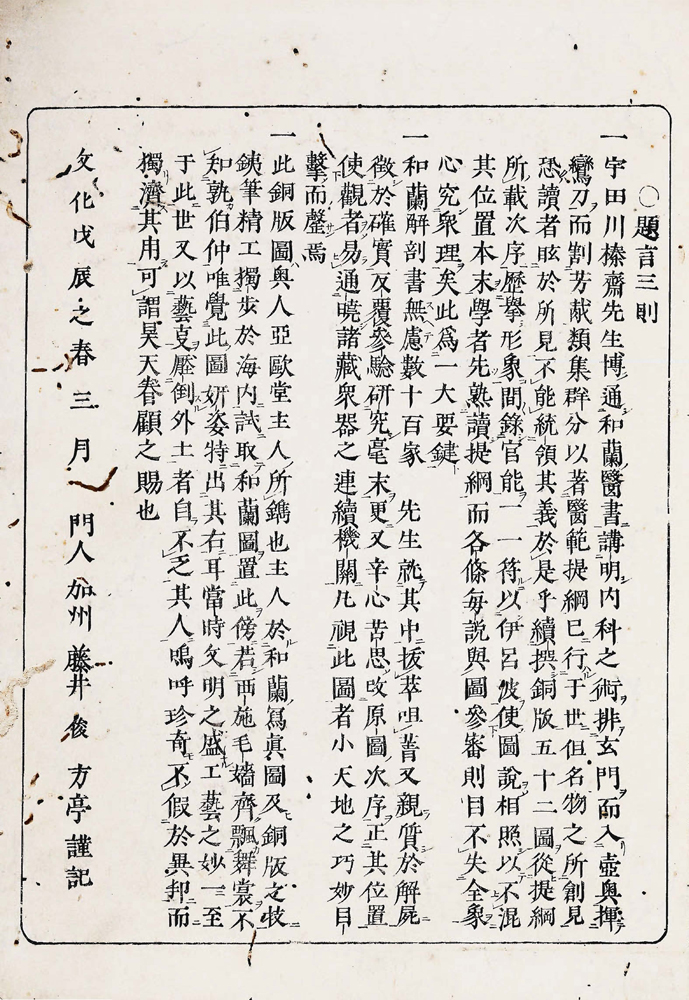 ○題言三則
一宇田川榛齋先生博通和蘭醫書講明內科之術排玄門而入壺奧揮
鸞刀而割芳獻類集群分以著醫範提綱已行于世但名物之所創見
恐讀者眩於所見不能統領其義於是乎續撰銅版五十二圖從提綱
所載次序歷擧形象間錄官能一一符以伊呂波使圖說相照以不混
其位置本末學者先熟讀提綱而各條每說與圖參審則目不失全象
心究衆理矣此爲一大要鍵
一和蘭解剖書無慮數十百家　先生就其中拔萃咀菁又親質於解屍
徵於確實反覆參驗研究毫末更又辛心苦思改原圖次序正其位置
使觀者易通曉諸藏衆器之連續機關凡視此圖者小天地之巧妙目
擊而罄焉
一此銅版圖與人亞歐堂主人所鐫也主人於和蘭寫眞圖及銅版之技
銕筆精工獨步於海內試取和蘭圖置此傍若西施毛嬙齊飄舞裳不
知孰伯仲唯覺此圖姸姿特出其右耳當時文明之盛工藝之妙一至
于此世又以藝壓倒外土者自不乏其人嗚呼珍奇不假於異邦而
獨濟其用可謂昊天眷顧之賜也
文化戊辰之春三月　門人加州藤井俊　方亭謹記